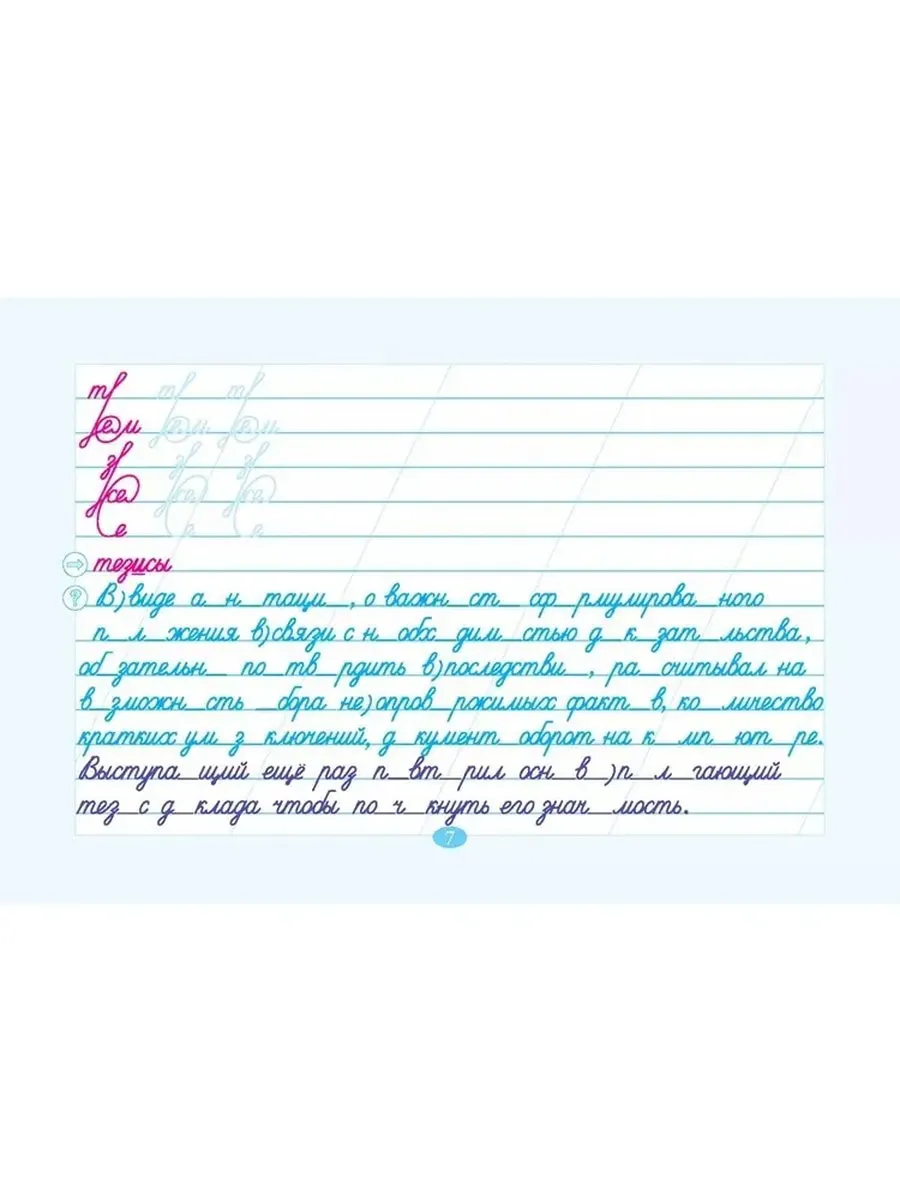 т
ем
з
се
е
тезисы
В)виде а_н_таци_, о важн_ст_ сф_рмулирова_ного
п_л_жения в)связи с н_обх_дим_стью д_к_зат_льства,
об_зательн_ по_тв_рдить в)последстви_, ра_считывал на
в_зможн_сть _бора не)опров_ржимых факт_в, ко_личество
кратких ум_з_ключений, д_кумент_оборот на к_мп_ют_ре.
Выступа_щий ещё раз п_вт_рил осн_в_)п_л_гающий
тез_с д_клада чтобы по_ч_кнуть его знач_мость.
7